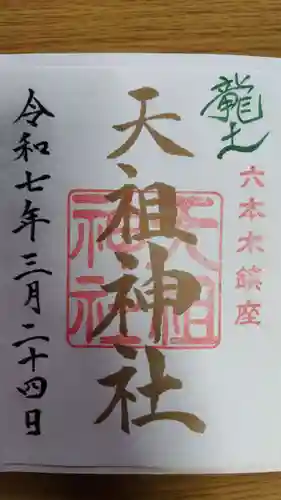 龍土
六本木鎮座
天祖神社
天祖神社
令和七年三月二十四日